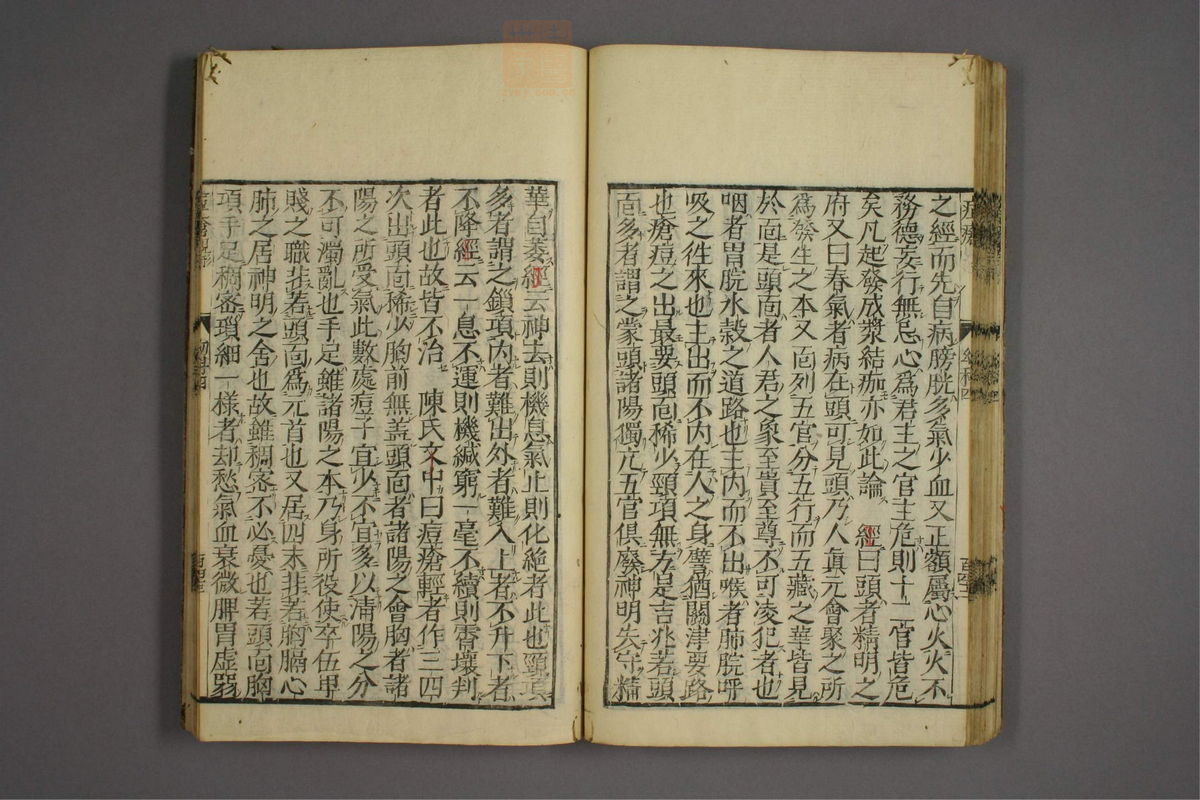 之經而先自病膀胱多氣少血又正額屬心火火不
務德妄行無忌心爲君主之官主危則十二官皆危
矣凡起發成漿結痂亦如此論　經曰頭者精明之
府又曰春氣者病在頭可見頭乃人眞元會聚之所
爲發生之本又靣列五官分五行而五藏之華皆見
於靣是頭靣者人君之象至貴至尊不可凌犯者也
咽者胃脘水榖之道路也主内而不出喉者肺脘呼
吸之徃來也主出而不内在人之身譬猶關津要路
也瘡痘之出最要頭靣稀少頸項無方是吉兆若頭
靣多者謂之蒙頭諸陽獨亢五官倶廢神明失守精
華自萎經云神去則機息氣止則化絶者此也頸項
多者謂之鎖項内者難出外者難入上者不升下者
不降經云一息不運則機緘窮一毫不續則霄壤判
者此也故皆不治　陳氏文中曰痘瘡輕者作三四
次出頭靣稀少胸前無盖頭靣者諸陽之會胸者諸
陽之所受氣此數處痘子宜少不宜多以清陽之分
不可濁亂也手足雖諸陽之本乃身所役使卒伍卑
賤之職非若頭靣爲元首也又居四末非若胸膈心
肺之居神明之舍也故雖稠密不必憂也若頭靣胸
項手足稠密瑣細一樣者却愁氣血衰微脾胃虚弱